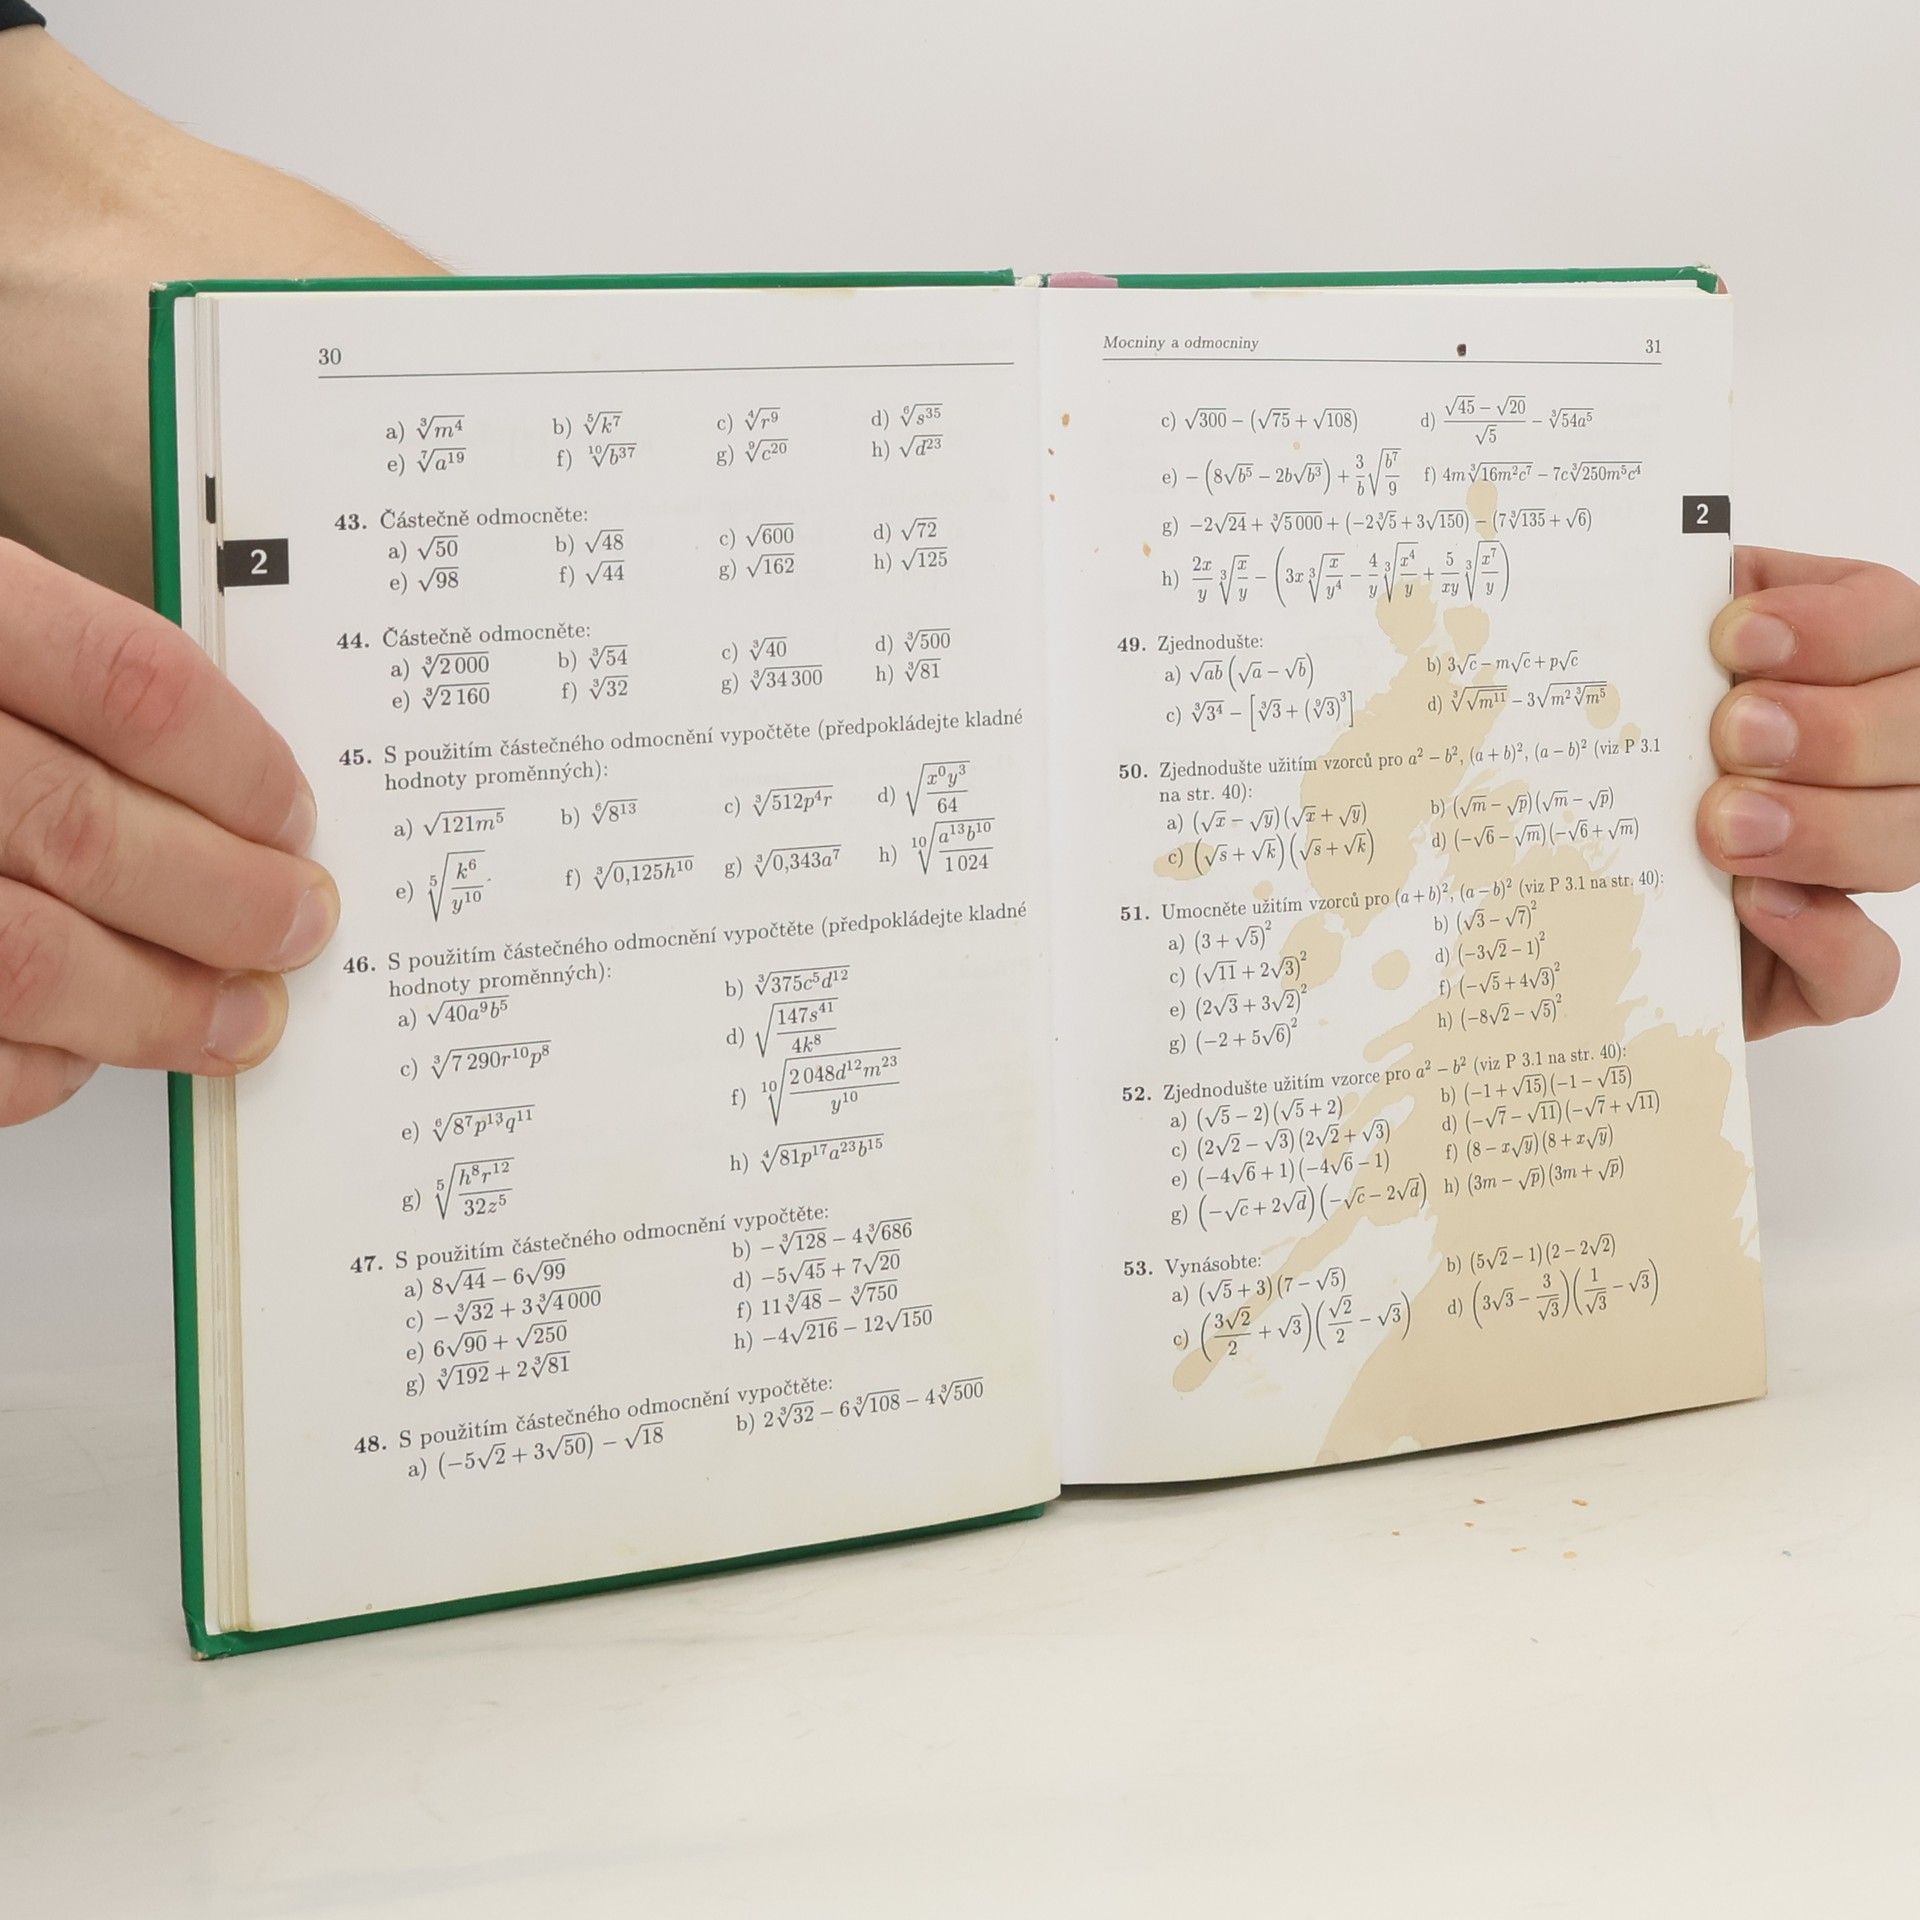 30
a) ∛m⁴ b) ⁵√k⁷ c) ⁴√r⁹ d) ⁶√s³⁵
e) ⁷√a¹⁹ f) ¹⁰√b³⁷ g) ⁹√c²⁰ h) √d²³
2
43. Částečně odmocněte:
a) √50 b) √48 c) √600 d) √72
e) √98 f) √44 g) √162 h) √125
44. Částečně odmocněte:
a) ∛2 000 b) ∛54 c) ∛40 d) ∛500
e) ∛2 160 f) ∛32 g) ∛34 300 h) ∛81
45. S použitím částečného odmocnění vypočtěte (předpokládejte kladné
hodnoty proměnných):
a) √(121m⁵) b) ⁶√8¹³ c) ∛(512p⁴r) d) √(x⁰y³/64)
e) ⁵√(k⁶/y¹⁰) f) ∛(0,125h¹⁰) g) ∛(0,343a⁷) h) ¹⁰√(a¹³b¹⁰/1 024)
46. S použitím částečného odmocnění vypočtěte (předpokládejte kladné
hodnoty proměnných):
a) √(40a⁹b⁵) b) ∛(375c⁵d¹²)
c) ∛(7 290r¹⁰p⁸) d) √(147s⁴¹/4k⁸)
e) ⁶√(8⁷p¹³q¹¹) f) ¹⁰√(2 048d¹²m²³/y¹⁰)
g) ⁵√(h⁸r¹²/32z⁵) h) ⁴√(81p¹⁷a²³b¹⁵)
47. S použitím částečného odmocnění vypočtěte:
a) 8√44 − 6√99 b) −∛128 − 4∛686
c) −∛32 + 3∛4 000 d) −5√45 + 7√20
e) 6√90 + √250 f) 11∛48 − ∛750
g) ∛192 + 2∛81 h) −4√216 − 12√150
48. S použitím částečného odmocnění vypočtěte:
a) (−5√2 + 3√50) − √18 b) 2∛32 − 6∛108 − 4∛500
Mocniny a odmocniny 31
c) √300 − (√75 + √108) d) (√45 − √20)/√5 − ∛(54a⁵)
e) −(8√b⁵ − 2b√b³) + 3/b √(b⁷/9) f) 4m∛(16m²c⁷) − 7c∛(250m⁵c⁴)
g) −2√24 + ∛5 000 + (−2∛5 + 3√150) − (7∛135 + √6)
2
h) 2x/y ∛(x/y) − (3x ∛(x/y⁴) − 4/y ∛(x⁴/y) + 5/xy ∛(x⁷/y))
49. Zjednodušte:
a) √ab (√a − √b) b) 3√c − m√c + p√c
c) ∛3⁴ − [∛3 + (⁹√3)³] d) ∛(√m¹¹) − 3√(m² ∛m⁵)
50. Zjednodušte užitím vzorců pro a² − b², (a + b)², (a − b)² (viz P 3.1
na str. 40):
a) (√x − √y)(√x + √y) b) (√m − √p)(√m − √p)
c) (√s + √k)(√s + √k) d) (−√6 − √m)(−√6 + √m)
51. Umocněte užitím vzorců pro (a + b)², (a − b)² (viz P 3.1 na str. 40):
a) (3 + √5)² b) (√3 − √7)²
c) (√11 + 2√3)² d) (−3√2 − 1)²
e) (2√3 + 3√2)² f) (−√5 + 4√3)²
g) (−2 + 5√6)² h) (−8√2 − √5)²
52. Zjednodušte užitím vzorce pro a² − b² (viz P 3.1 na str. 40):
a) (√5 − 2)(√5 + 2) b) (−1 + √15)(−1 − √15)
c) (2√2 − √3)(2√2 + √3) d) (−√7 − √11)(−√7 + √11)
e) (−4√6 + 1)(−4√6 − 1) f) (8 − x√y)(8 + x√y)
g) (−√c + 2√d)(−√c − 2√d) h) (3m − √p)(3m + √p)
53. Vynásobte:
a) (√5 + 3)(7 − √5) b) (5√2 − 1)(2 − 2√2)
c) (3√2/2 + √3)(√2/2 − √3) d) (3√3 − 3/√3)(1/√3 − √3)